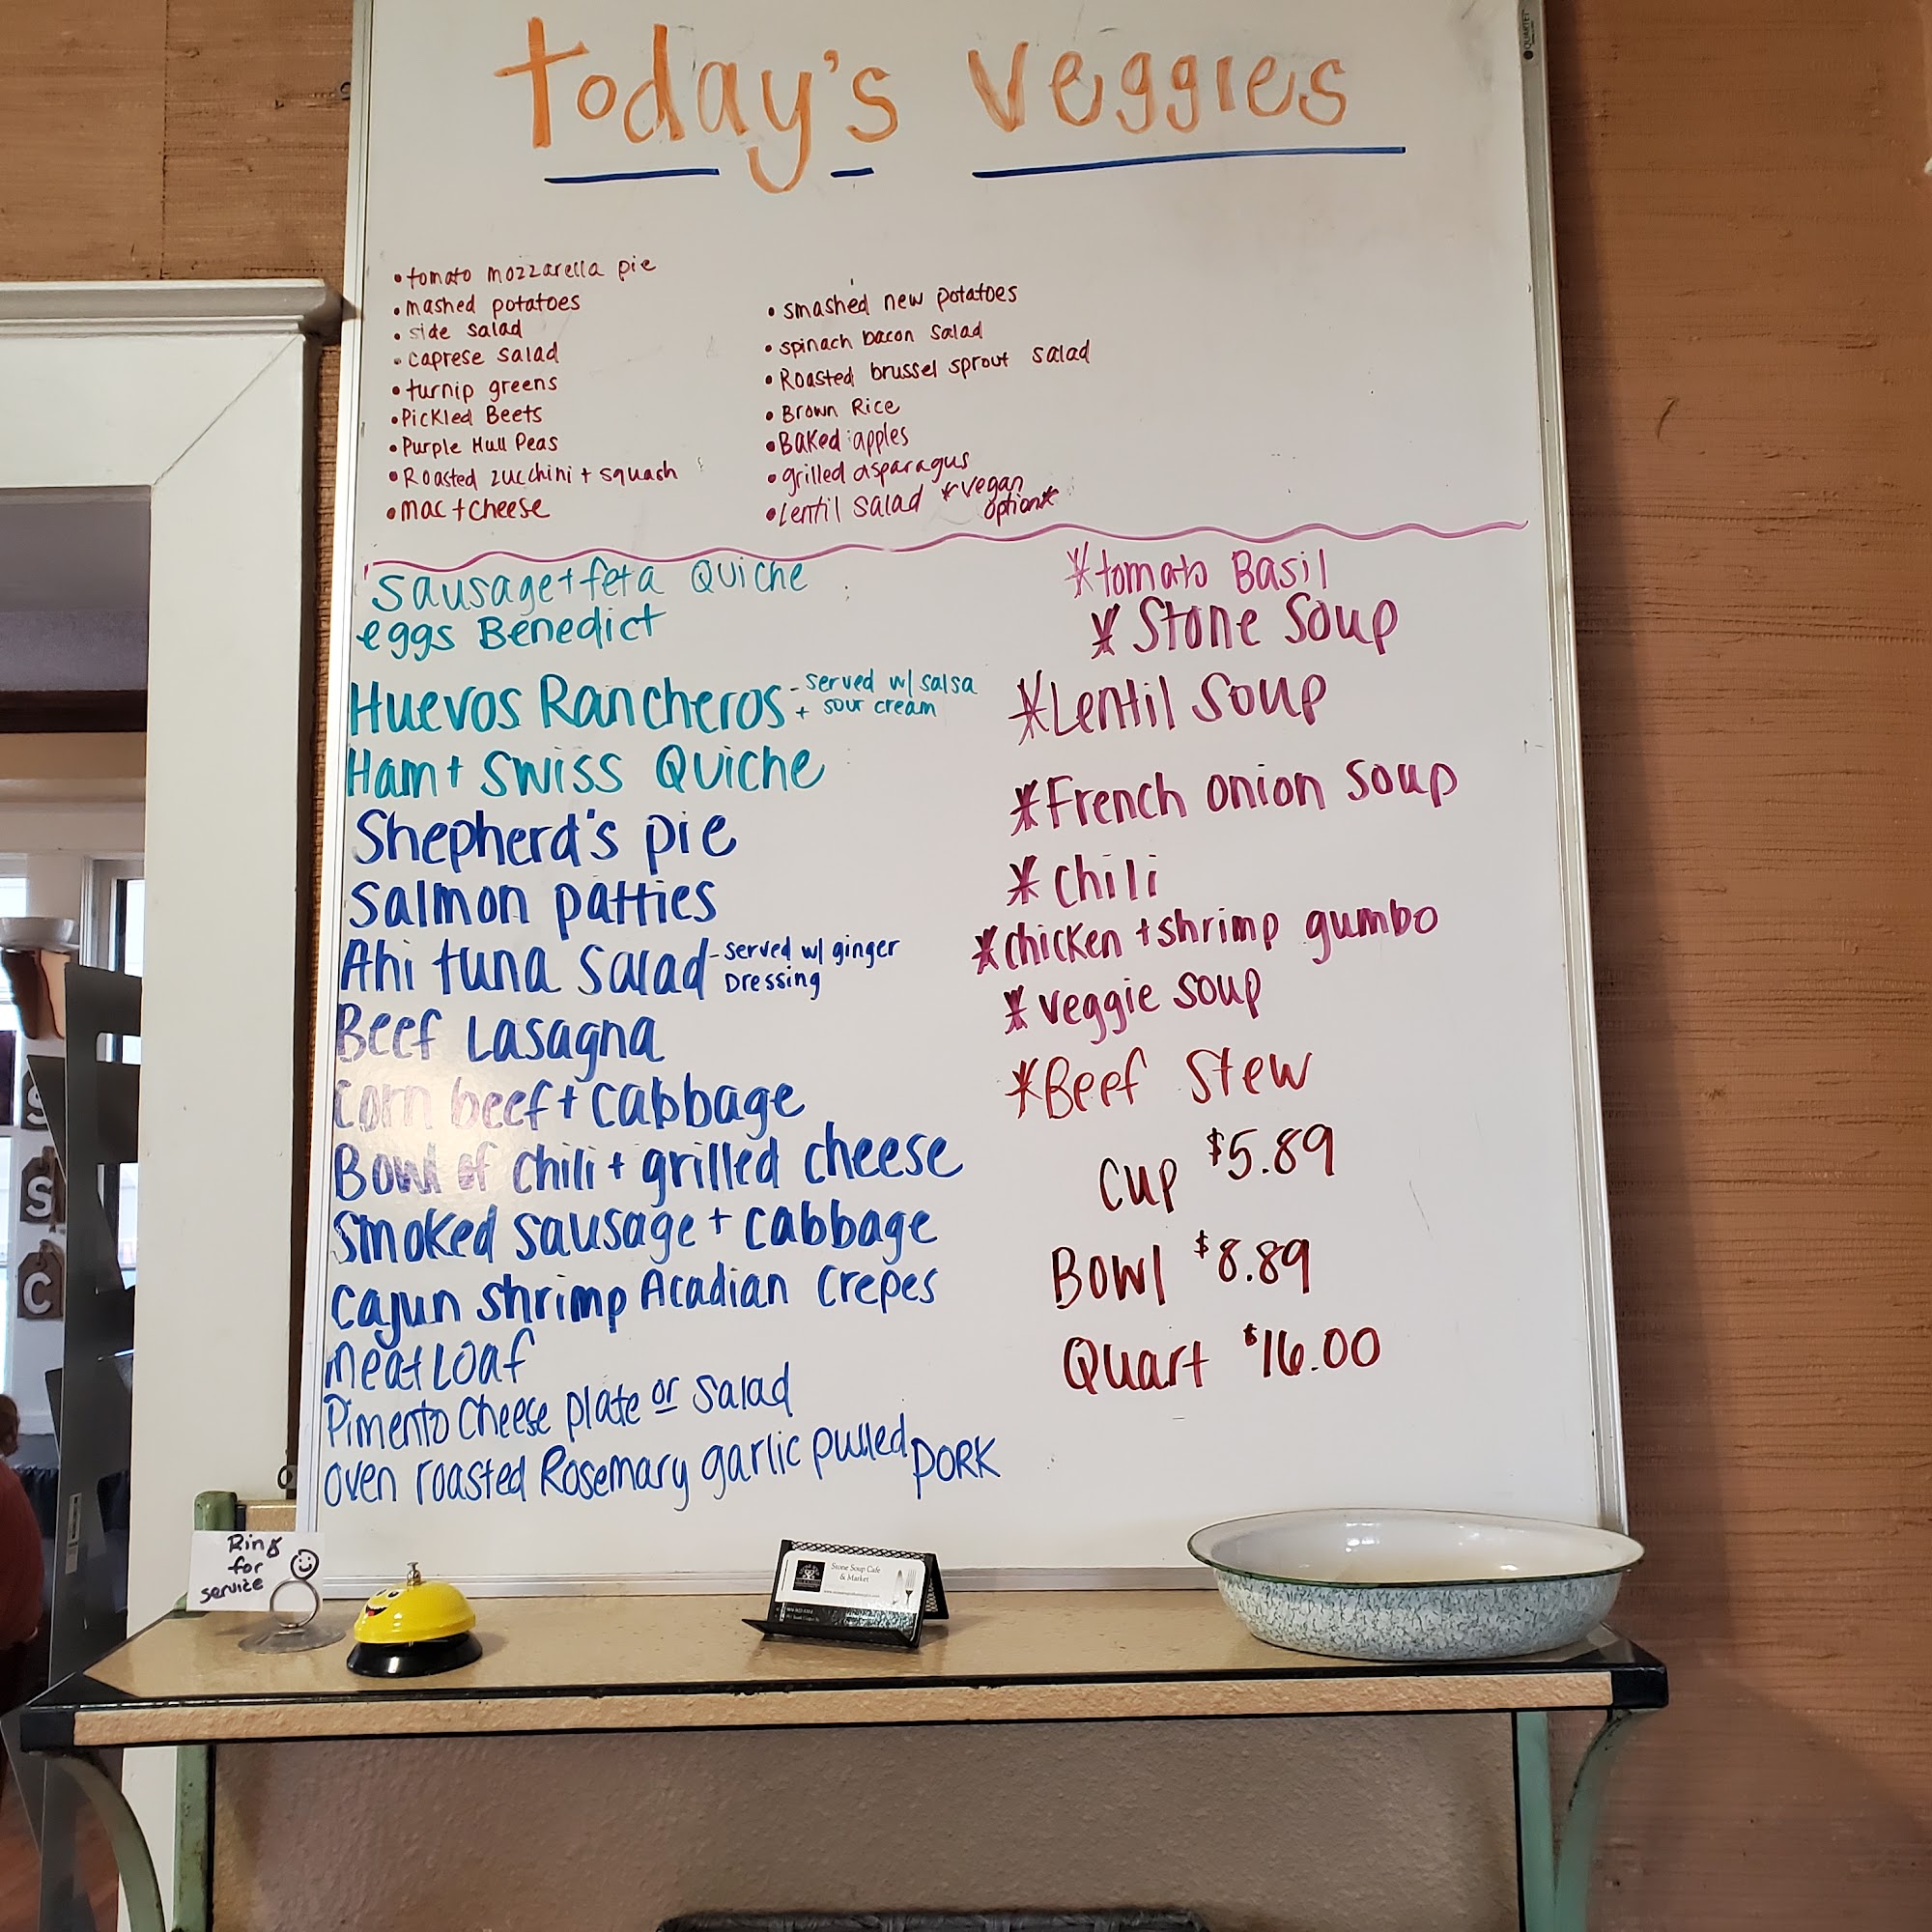 Today's Veggies
QUARTET
•tomato mozzarella pie
•mashed potatoes
•side salad
•caprese salad
•turnip greens
•Pickled Beets
•Purple Hull Peas
•Roasted zucchini + squash
•mac + cheese
•smashed new potatoes
•spinach bacon salad
•Roasted brussel sprout salad
•Brown Rice
•Baked apples
•grilled asparagus
•Lentil salad *vegan
option*
Sausage + feta Quiche
eggs Benedict
Huevos Rancheros - served w/ salsa
+ sour cream
Ham + Swiss Quiche
Shepherd's pie
Salmon patties
Ahi tuna Salad - served w/ ginger
Dressing
Beef Lasagna
corn beef + cabbage
Bowl of chili + grilled cheese
Smoked sausage + cabbage
Cajun shrimp Acadian Crepes
Meat Loaf
Pimento Cheese plate or Salad
oven roasted Rosemary garlic pulled PORK
*tomato Basil
*Stone Soup
*Lentil Soup
*French onion Soup
*chili
*chicken + shrimp gumbo
*veggie soup
*Beef Stew
Cup $5.89
Bowl $8.89
Quart $16.00
S
S
C
Ring
for
service
Stone Soup Café
& Market